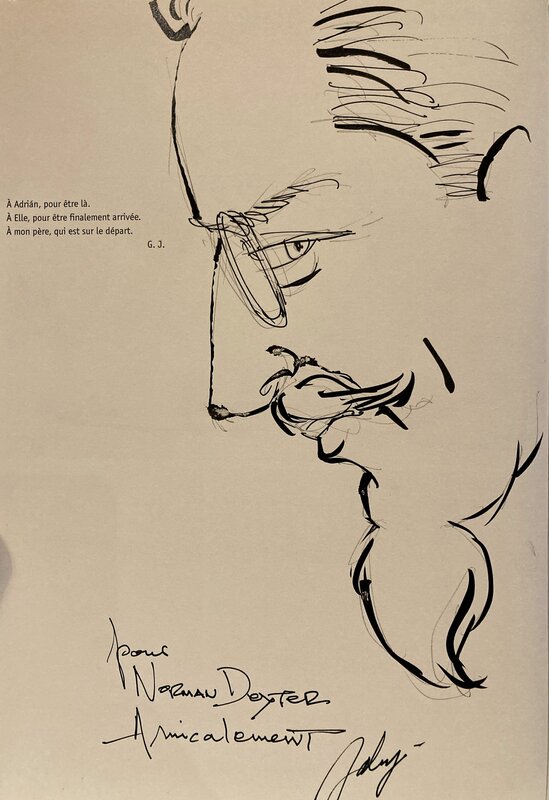 À Adrián, pour être là.
À Elle, pour être finalement arrivée.
À mon père, qui est sur le départ.
G. J.
pour
Norman Dexter
Amicalement